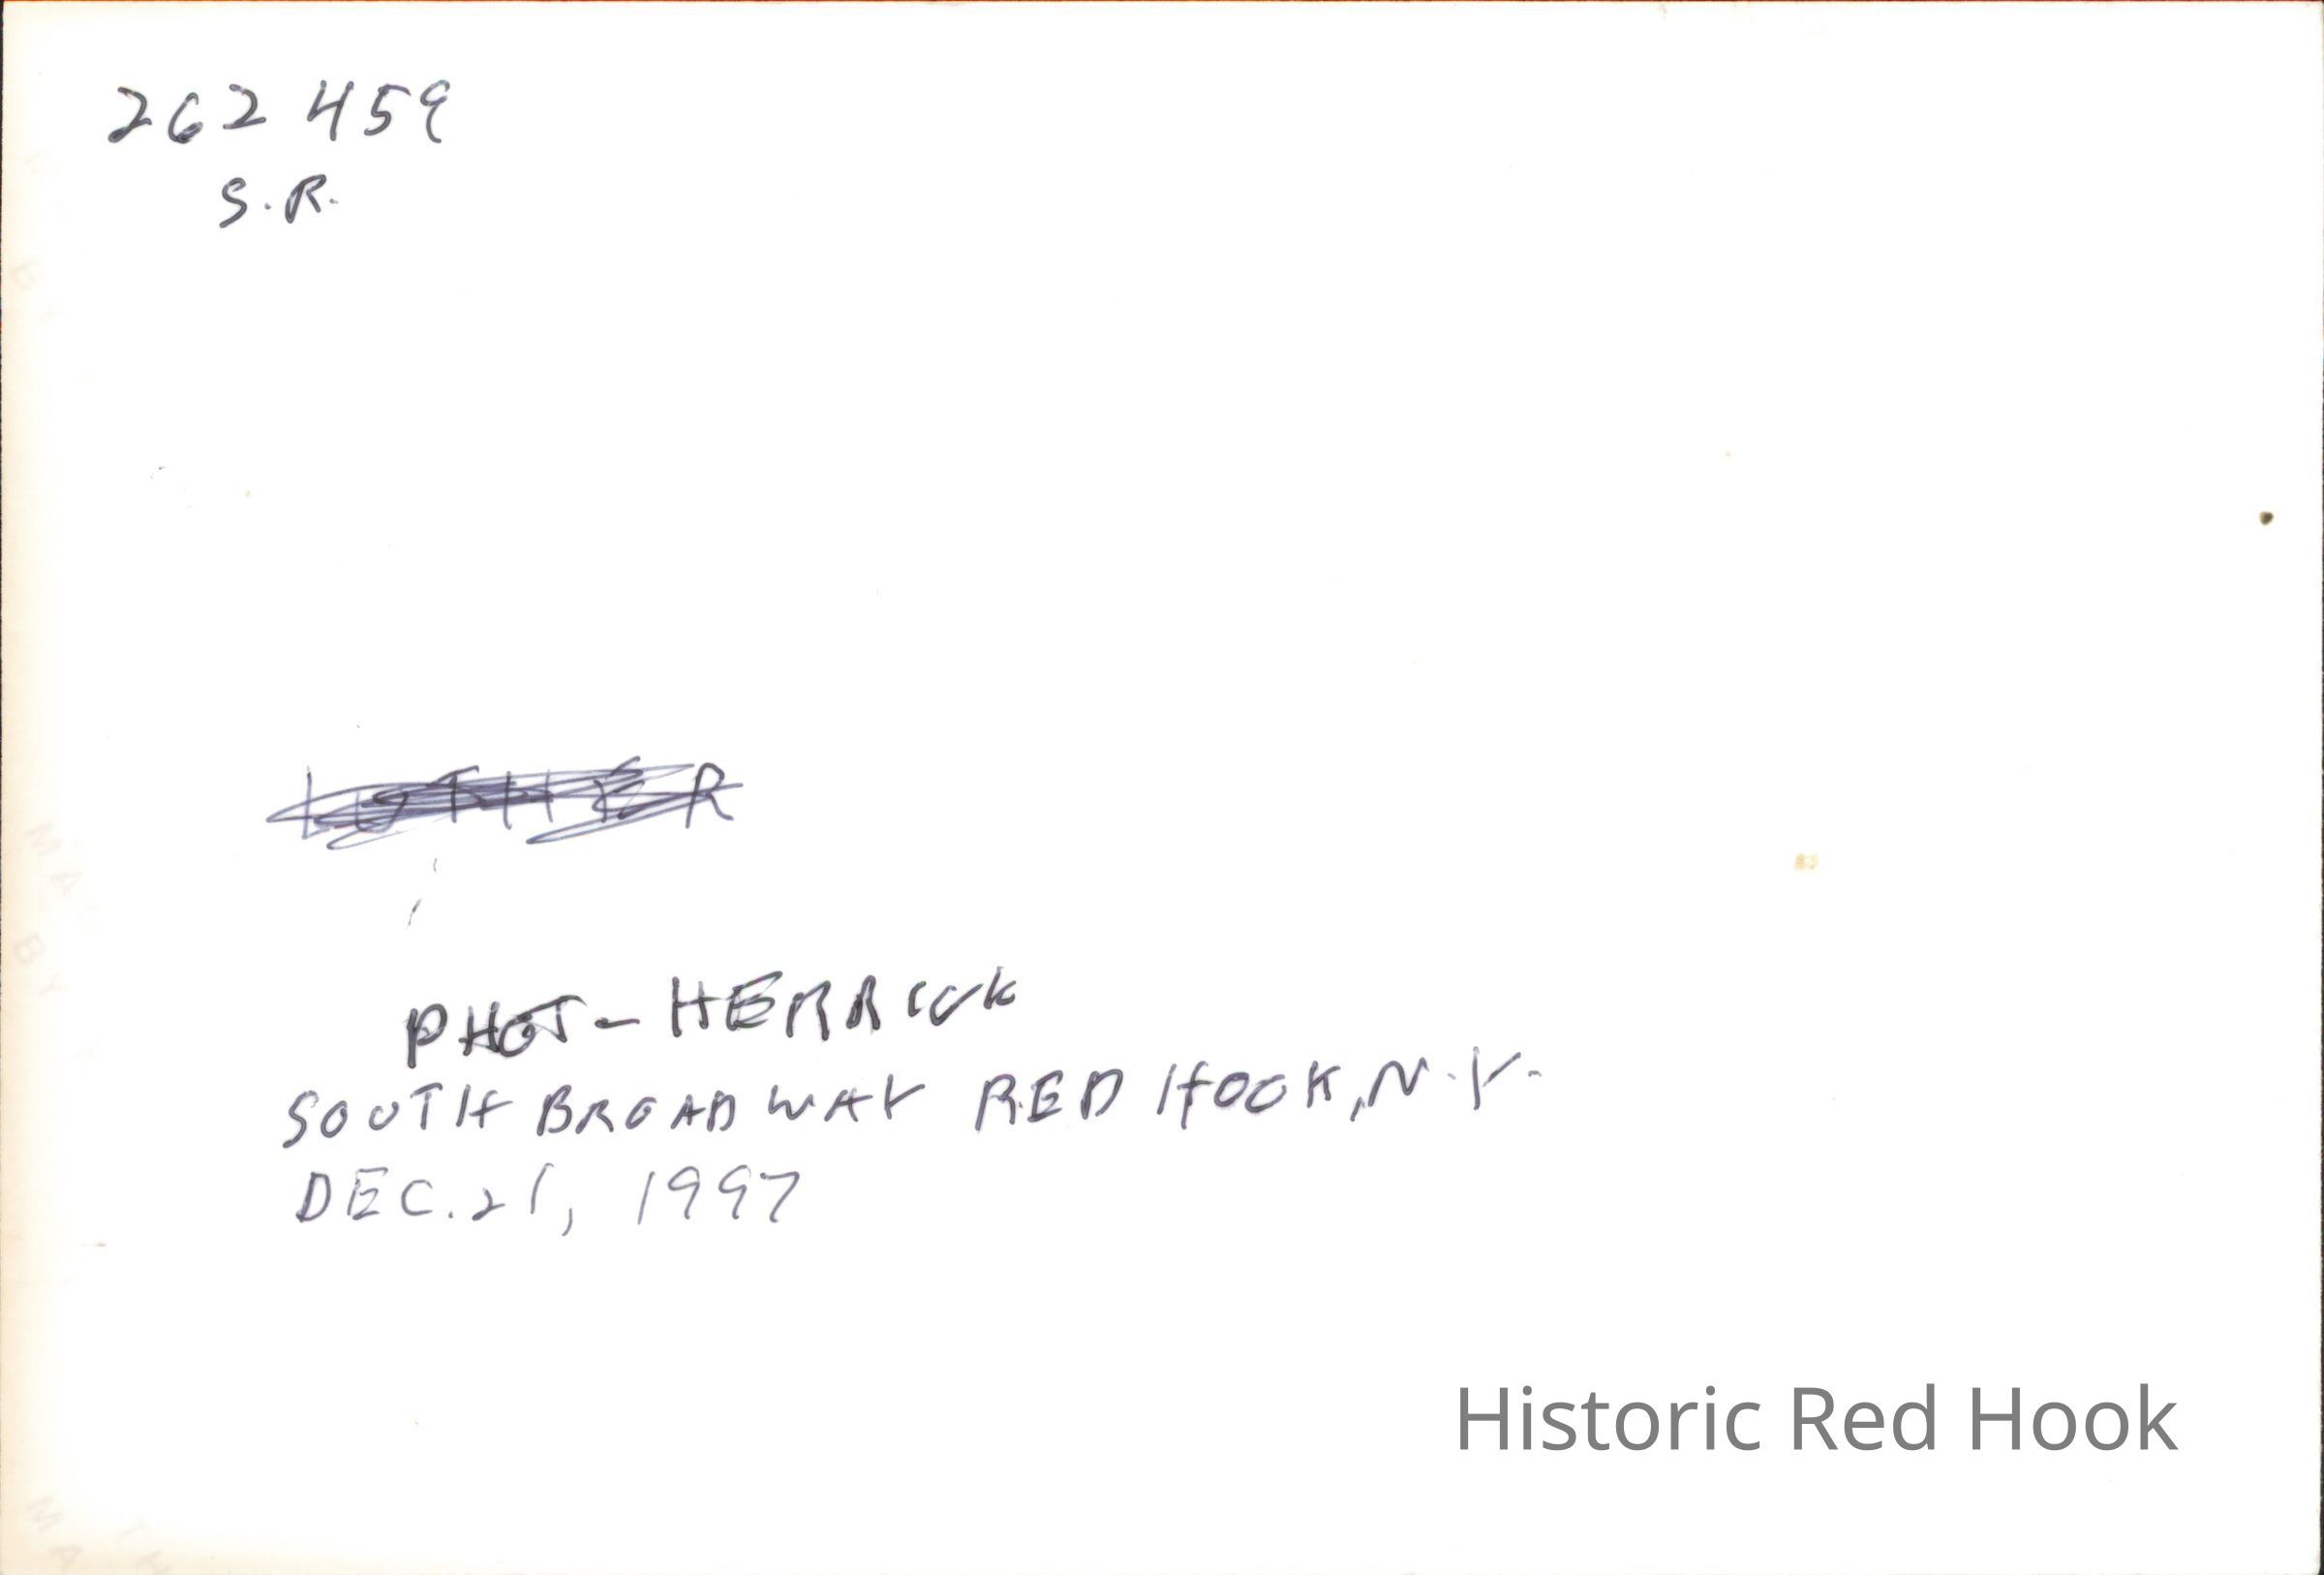 262 459
S.R.
LUTHER
PHOT-HERRICK
SOUTH BROADWAY RED HOOK, N.Y.
DEC. 21, 1997
Historic Red Hook